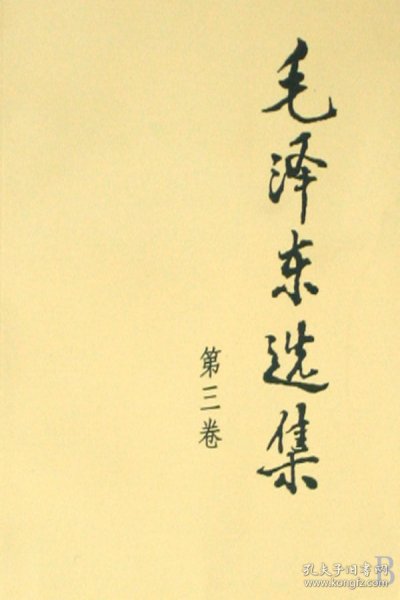 毛泽东选集
第三卷
B
孔夫子旧书网
www.kongfz.com